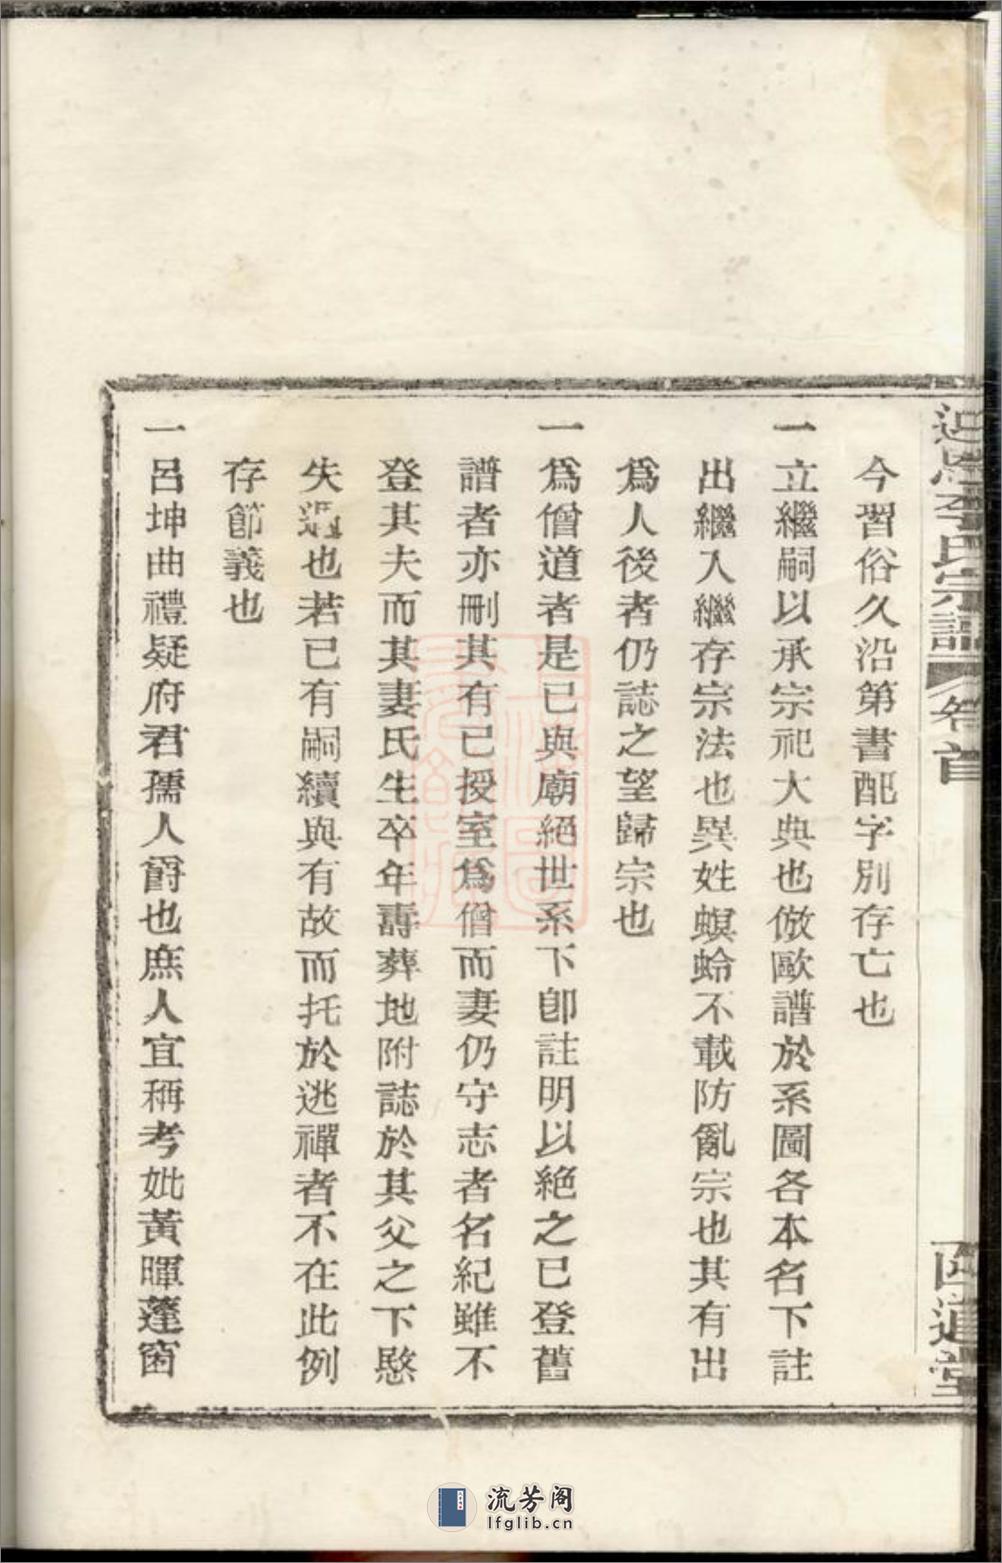 李氏宗譜
卷首
四道堂
今習俗久沿第書配字別存亡也
一立繼嗣以承宗祀大典也倣歐譜於系圖各本名下註
出繼入繼存宗法也異姓螟蛉不載防亂宗也其有出
爲人後者仍誌之望歸宗也
一爲僧道者是已與廟絕世系下卽註明以絕之已登舊
譜者亦刪其有已授室爲僧而妻仍守志者名紀雖不
登其夫而其妻氏生卒年壽葬地附誌於其父之下愍
失遇也若已有嗣續與有故而托於逃禪者不在此例
存節義也
一呂坤曲禮疑府君孺人爵也庶人宜稱考妣黃暉蓬窗
流芳阁
lfglib.cn